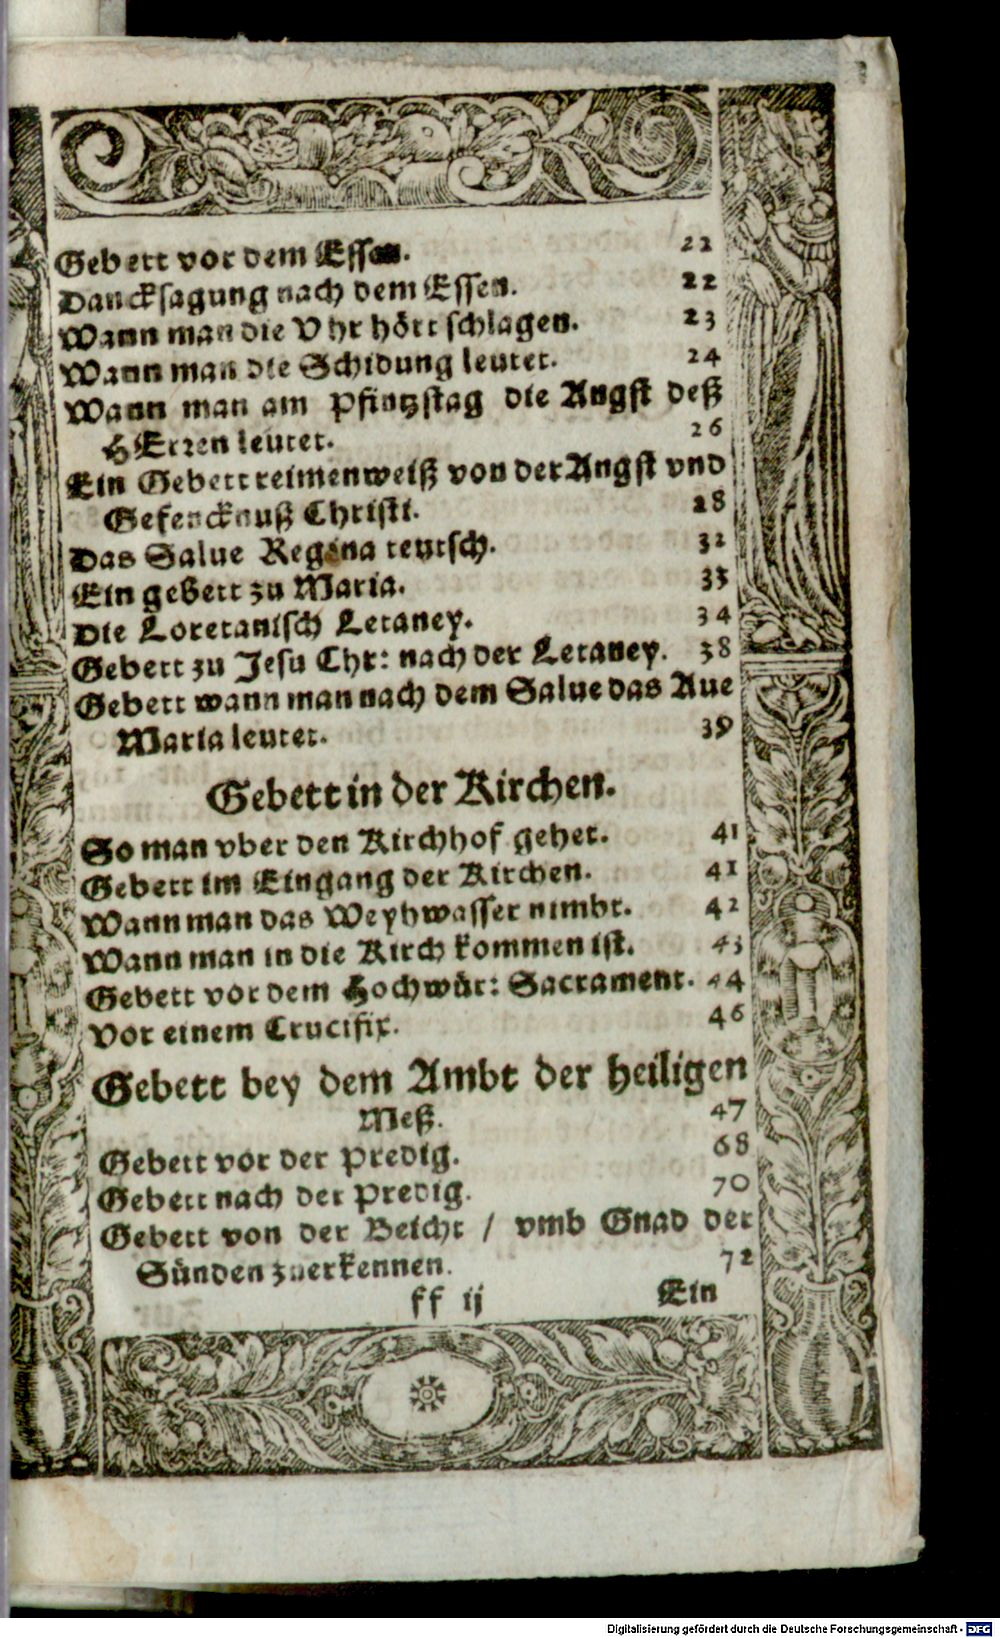 Gebett vor dem Essen. 22
Dancksagung nach dem Essen. 22
Wann man die Vhr hört schlagen. 23
Wann man die Schidung leutet. 24
Wann man am Pfintzstag die Angst deß
HErren leutet. 26
Ein Gebett reimenweiß von der Angst vnd
Gefencknuß Christi. 28
Das Salue Regina teutsch. 32
Ein gebett zu Maria. 33
Die Loretanisch Letaney. 34
Gebett zu Jesu Chr: nach der Letaney. 38
Gebett wann man nach dem Salue das Aue
Maria leutet. 39
Gebett in der Kirchen.
So man vber den Kirchhof gehet. 41
Gebett im Eingang der Kirchen. 41
Wann man das Weyhwasser nimbt. 42
Wann man in die Kirch kommen ist. 43
Gebett vor dem Hochwür: Sacrament. 44
Vor einem Crucifix. 46
Gebett bey dem Ambt der heiligen
Meß. 47
Gebett vor der Predig. 68
Gebett nach der Predig. 70
Gebett von der Beicht / vmb Gnad der
Sünden zuerkennen. 72
ff ij Ein
Digitalisierung gefördert durch die Deutsche Forschungsgemeinschaft - DFG